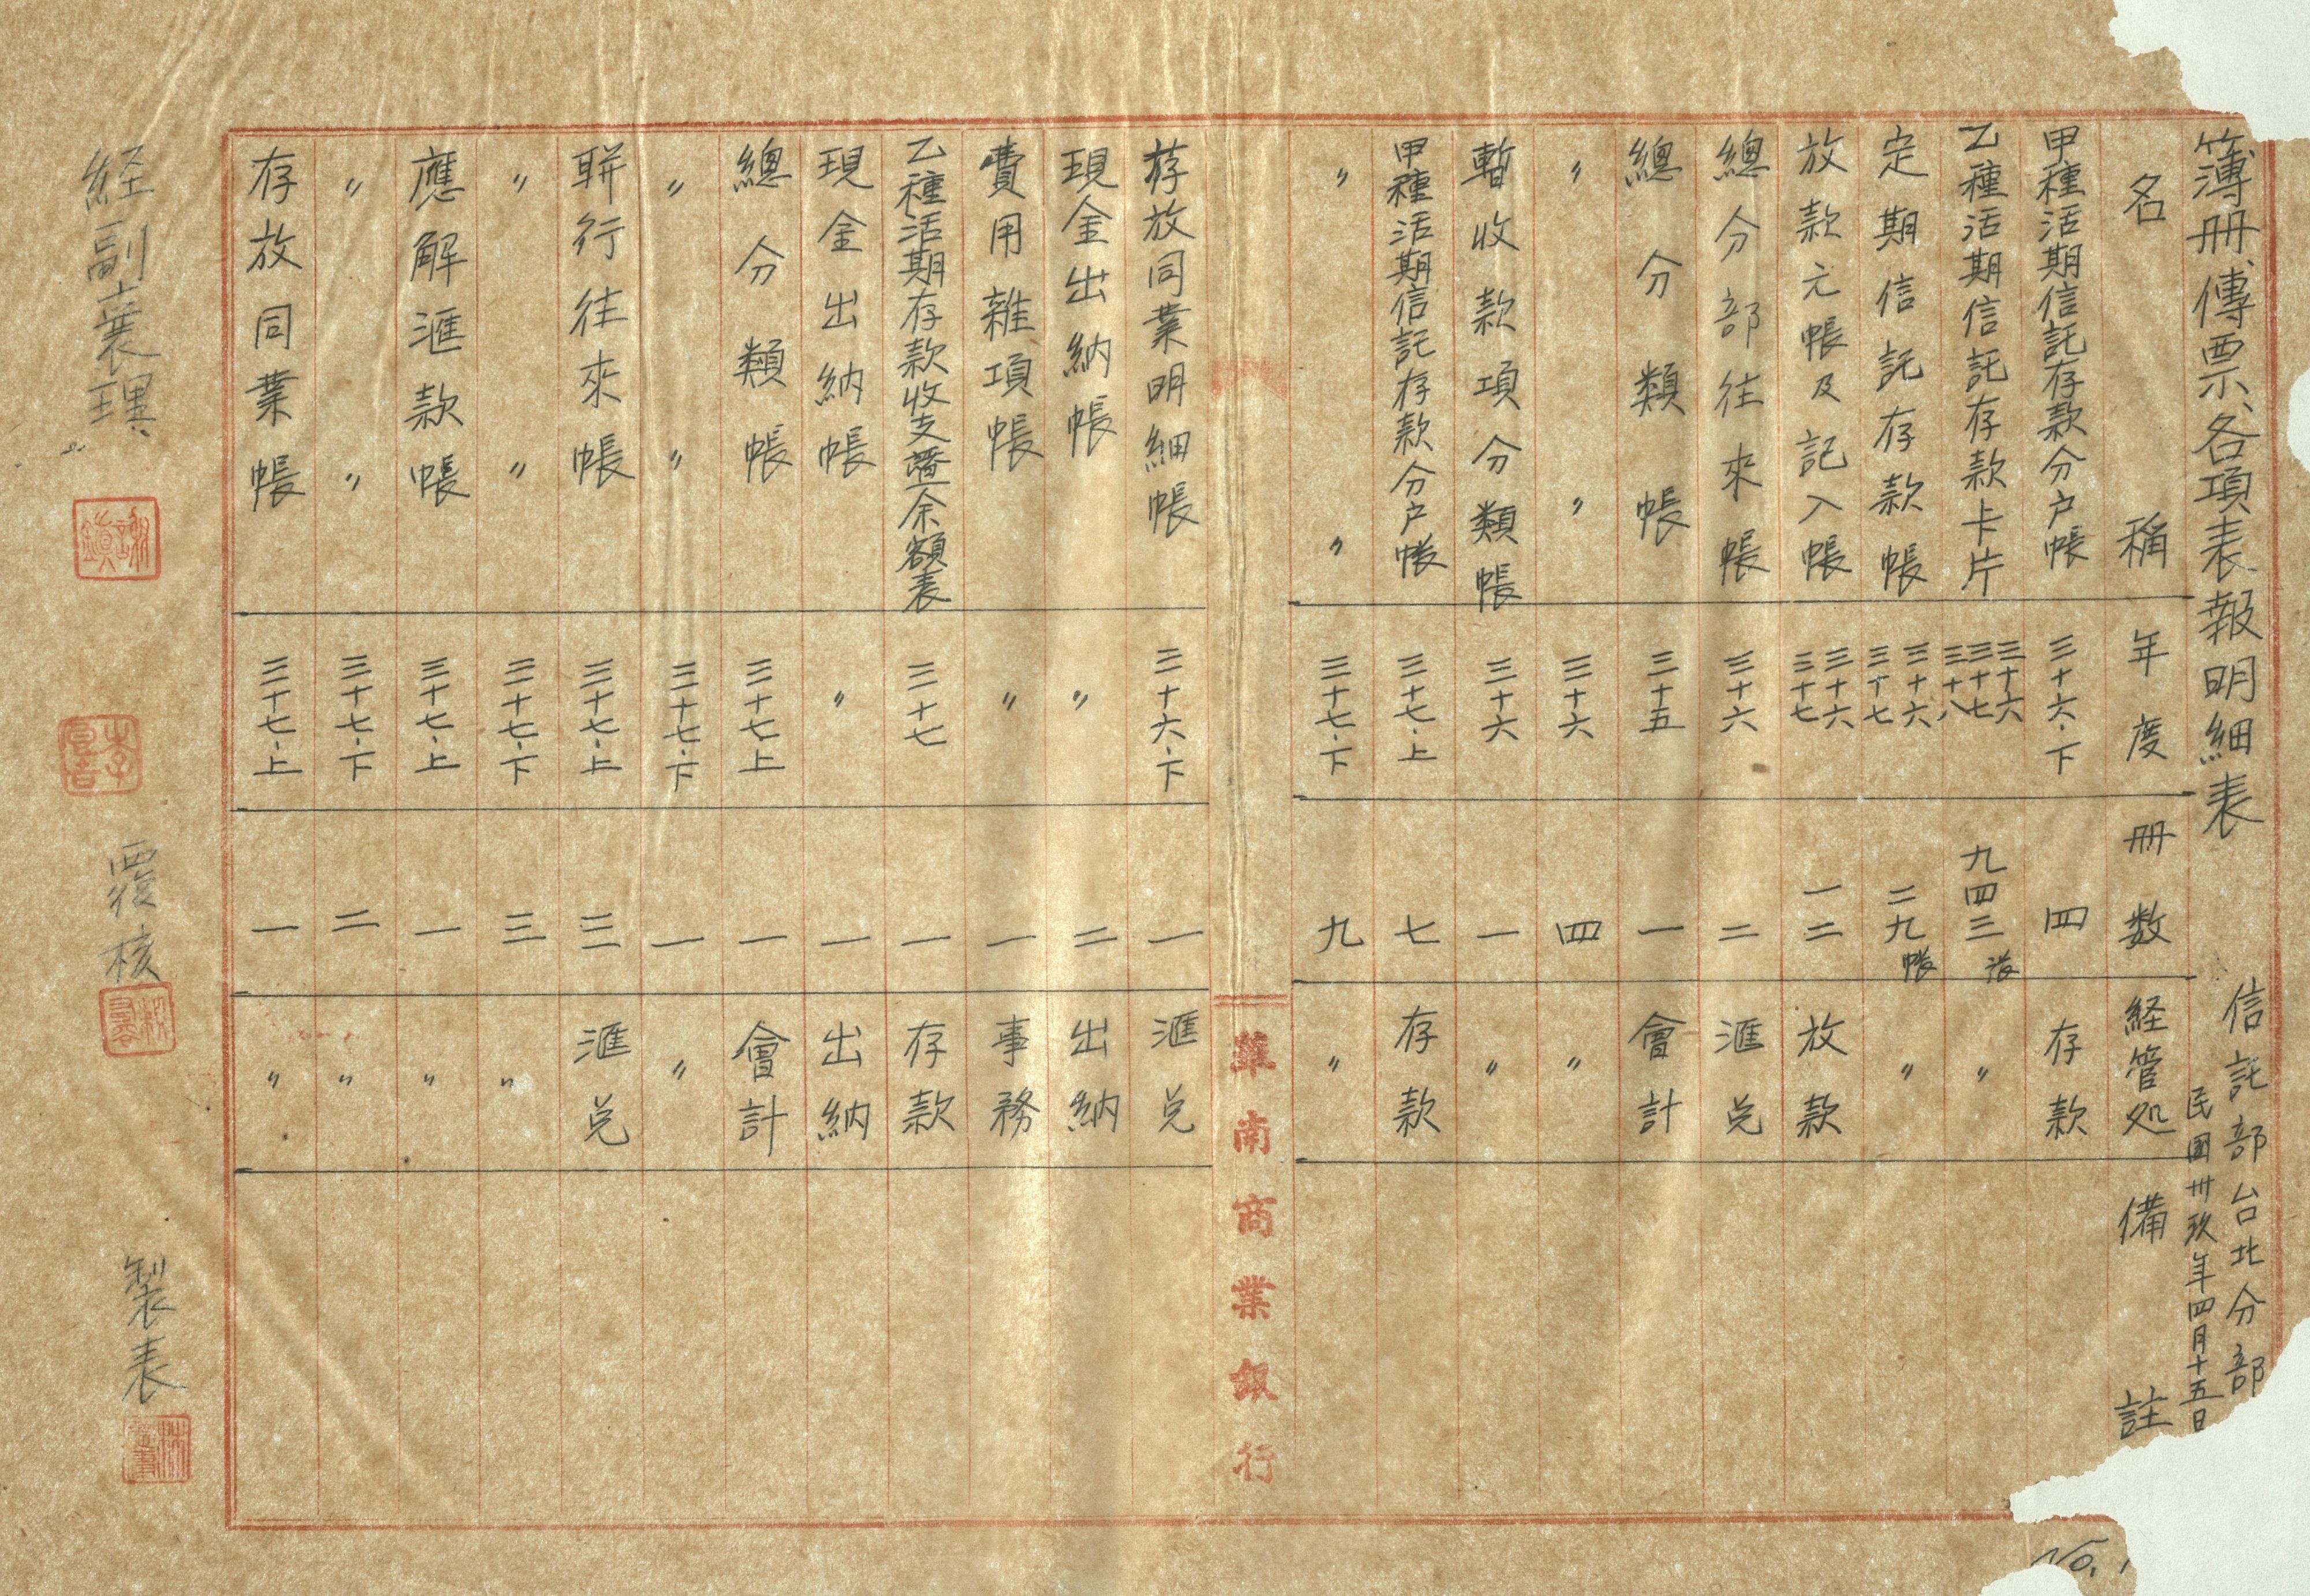 簿冊、傳票、各項表報明細表
信託部台北分部
民國卅玖年四月十五日
名稱 年度 冊数 経管処 備註
甲種活期信託存款分户帳 三十六、下 四 存款
乙種活期信託存款卡片 三十六 三十七 三十八 九四三張 〃
定期信託存款帳 三十六 三十七 二九帳 〃
放款元帳及記入帳 三十六 三十七 一二 放款
總分部往來帳 三十六 二 滙兑
總分類帳 三十五 一 會計
〃 〃 三十六 四 〃
暫收款項分類帳 三十六 一 〃
甲種活期信託存款分户帳 三十七、上 七 存款
〃 〃 三十七、下 九 〃
華南商業銀行
存放同業明細帳 三十六、下 一 滙兑
現金出納帳 〃 二 出納
費用雜項帳 〃 一 事務
乙種活期存款收支暨余額表 三十七 一 存款
現金出納帳 〃 一 出納
總分類帳 三十七、上 一 會計
〃 〃 三十七、下 一 〃
聯行往來帳 三十七、上 三 滙兑
〃 〃 三十七、下 三 〃
應解滙款帳 三十七、上 一 〃
〃 〃 三十七、下 二 〃
存放同業帳 三十七、上 一 〃
経副襄理 覆核 製表
No. 1